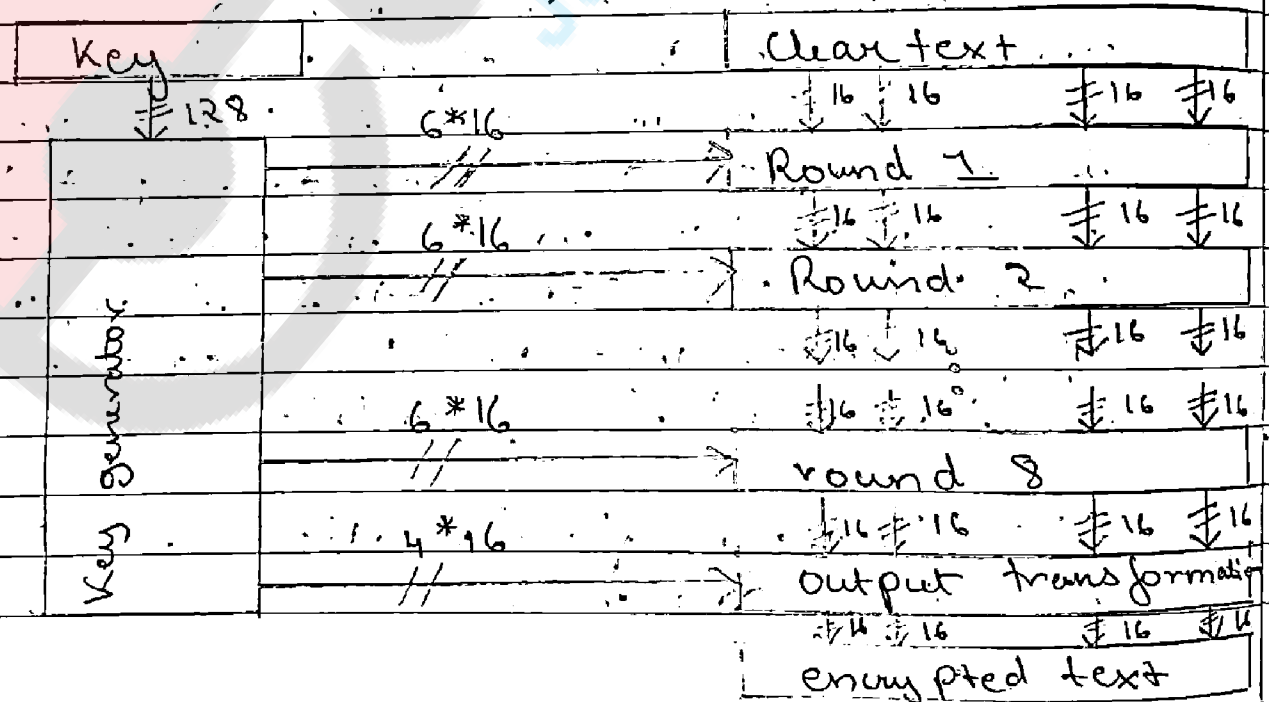 Key Clear text
128 16 16 16 16
6*16
Round 1
16 16 16 16
6*16
Round 2
16 16 16 16
16 16 16 16
6*16
round 8
16 16 16 16
4*16
output transformation
16 16 16 16
encrypted text
Key generator